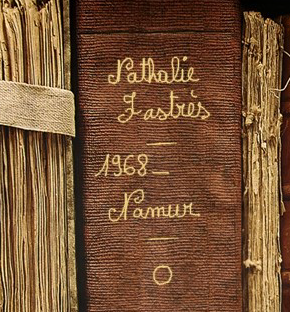 Nathalie
Zastrès
1968 —
Namur